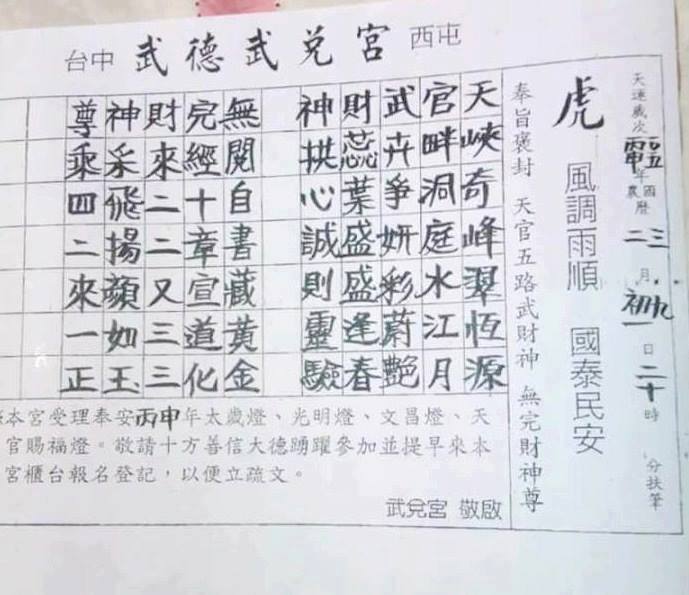 台中 武德武兌宮 西屯
天運歲次丙申一〇五年國農曆三二月九初一日二十時 分扶筆
虎 風調雨順 國泰民安
奉旨褒封 天官五路武財神 無完財神尊
天峽奇峰翠恆源
官畔洞庭水江月
武卉爭妍彩蔚艷
財蕊葉盛盛逢春
神拱心誠則靈驗
無閱自書藏黃金
完經十章宣道化
財來二二又三三
神采飛揚顏如玉
尊乘四二來一正
本宮受理奉安丙申年太歲燈、光明燈、文昌燈、天
官賜福燈。敬請十方善信大德踴躍參加並提早來本
宮櫃台報名登記，以便立疏文。
武兌宮 敬啟